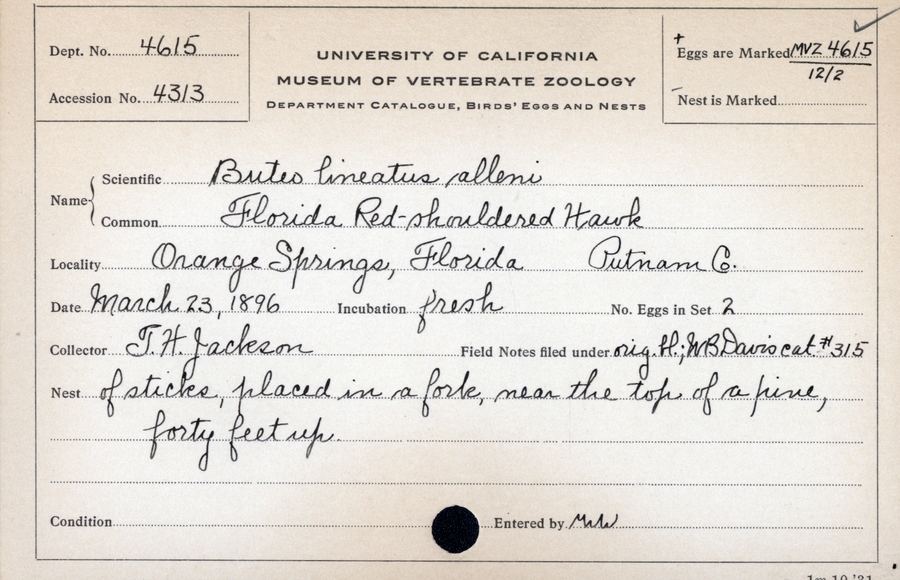 Dept. No. 4615
Accession No. 4313
UNIVERSITY OF CALIFORNIA
MUSEUM OF VERTEBRATE ZOOLOGY
DEPARTMENT CATALOGUE, BIRDS' EGGS AND NESTS
+ Eggs are Marked MVZ 4615
12/2
- Nest is Marked
Name { Scientific Buteo lineatus alleni
Common Florida Red-shouldered Hawk
Locality Orange Springs, Florida Putnam Co.
Date March 23, 1896 Incubation fresh No. Eggs in Set 2
Collector T. H. Jackson Field Notes filed under orig. H.; WB Davis cat. #315
Nest of sticks, placed in a fork, near the top of a pine,
forty feet up.
Condition Entered by
1m 10 '31